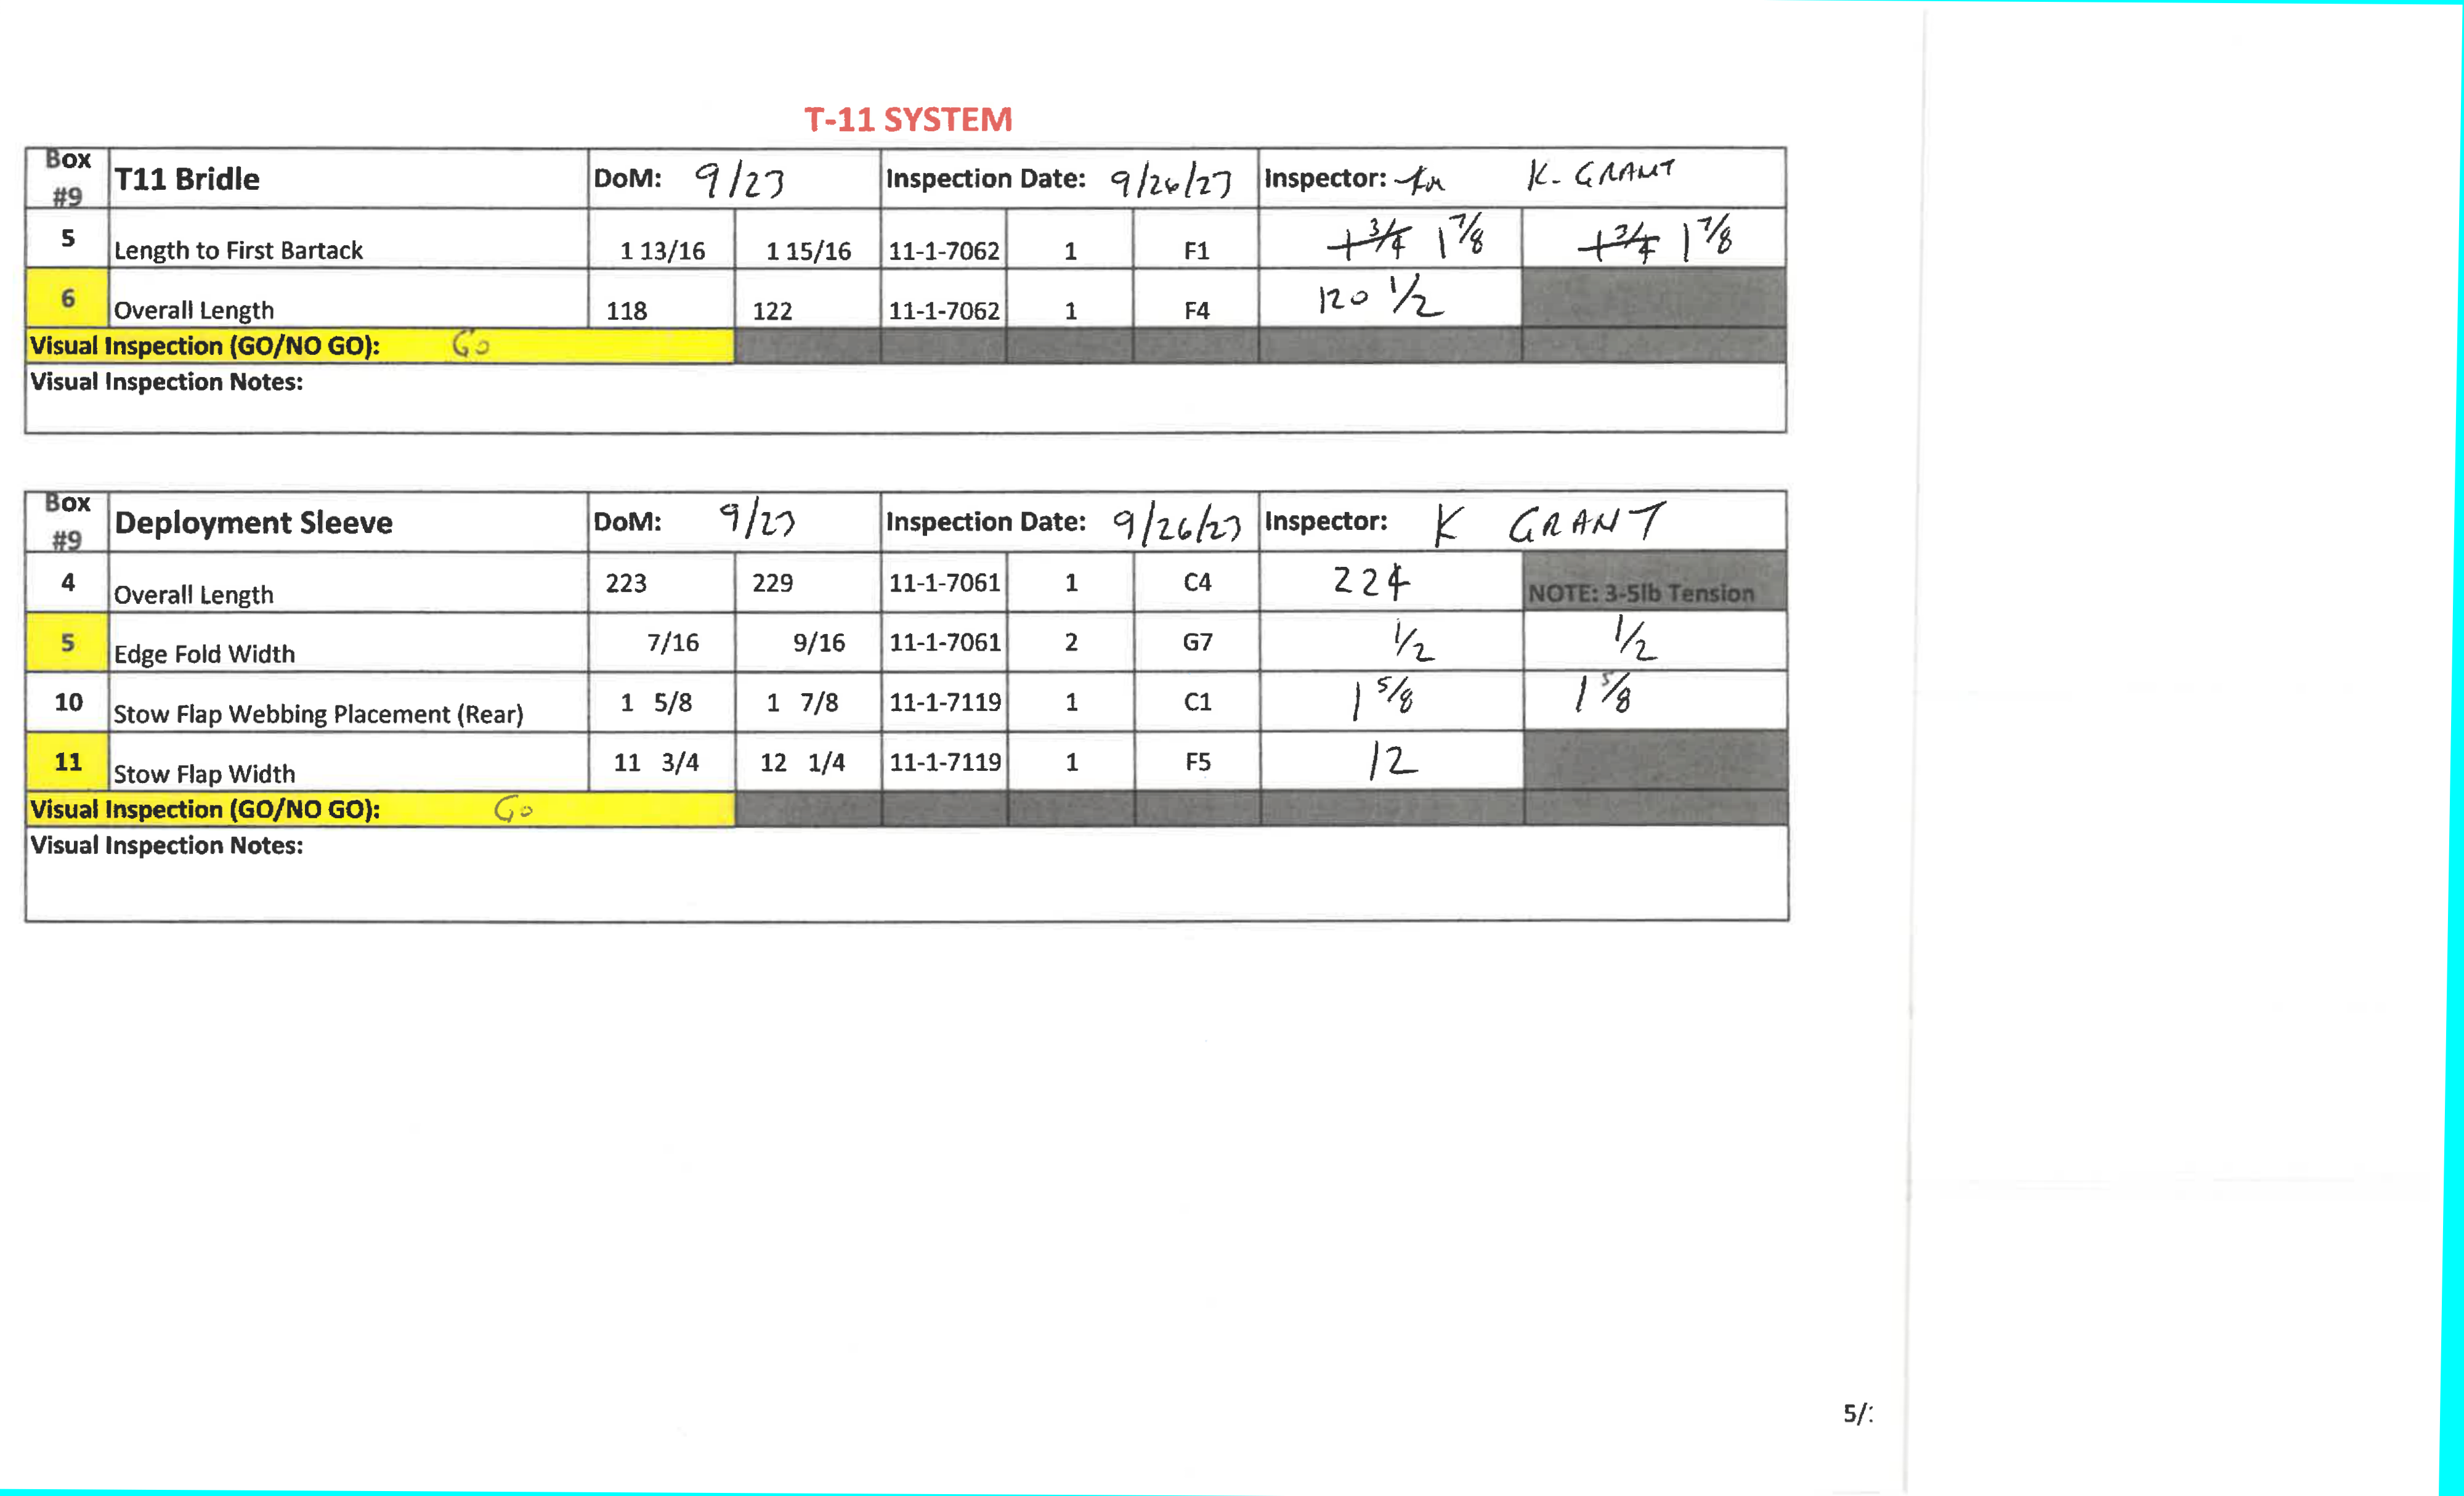 T-11 SYSTEM
Box #9 T11 Bridle DoM: 9/23 Inspection Date: 9/26/23 Inspector: K. GRANT
5 Length to First Bartack 1 13/16 1 15/16 11-1-7062 1 F1 1 3/4 1 7/8 1 3/4 1 7/8
6 Overall Length 118 122 11-1-7062 1 F4 120 1/2
Visual Inspection (GO/NO GO): GO
Visual Inspection Notes:
Box #9 Deployment Sleeve DoM: 9/23 Inspection Date: 9/26/23 Inspector: K GRANT
4 Overall Length 223 229 11-1-7061 1 C4 224 NOTE: 3-5lb Tension
5 Edge Fold Width 7/16 9/16 11-1-7061 2 G7 1/2 1/2
10 Stow Flap Webbing Placement (Rear) 1 5/8 1 7/8 11-1-7119 1 C1 1 5/8 1 5/8
11 Stow Flap Width 11 3/4 12 1/4 11-1-7119 1 F5 12
Visual Inspection (GO/NO GO): GO
Visual Inspection Notes:
5/